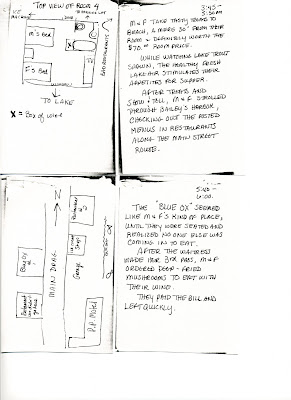 TOP VIEW OF ROOM 4
M's BED
F's BED
TO LAKE
X = Box of wine
3:45-
M & F TAKE TASTY TREATS TO
BEACH, A MERE 50' FROM THEIR
ROOM & DEFINITELY WORTH THE
$70.00 ROOM PRICE.
WHILE WATCHING LAKE TROUT
SPAWN, THE HEALTHY FRESH
LAKE AIR STIMULATES THEIR
APPETITES FOR SUPPER.
AFTER TREATS AND
SHOW & TELL, M & F STROLLED
THROUGH BAILEY'S HARBOR,
CHECKING OUT THE POSTED
MENUS IN RESTAURANTS
ALONG THE MAIN STREET
ROUTE.
N
MAIN DRAG
Blue Ox
Garage
P.P. Motel
5:40-
6:00.
THE "BLUE OX" SEEMED
LIKE M & F'S KIND OF PLACE,
UNTIL THEY WERE SEATED AND
REALIZED NO ONE ELSE WAS
COMING IN TO EAT.
AFTER THE WAITRESS
MADE HER 3RD PASS, M & F
ORDERED DEEP-FRIED
MUSHROOMS TO EAT WITH
THEIR WINE.
THEY PAID THE BILL AND
LEFT QUICKLY.